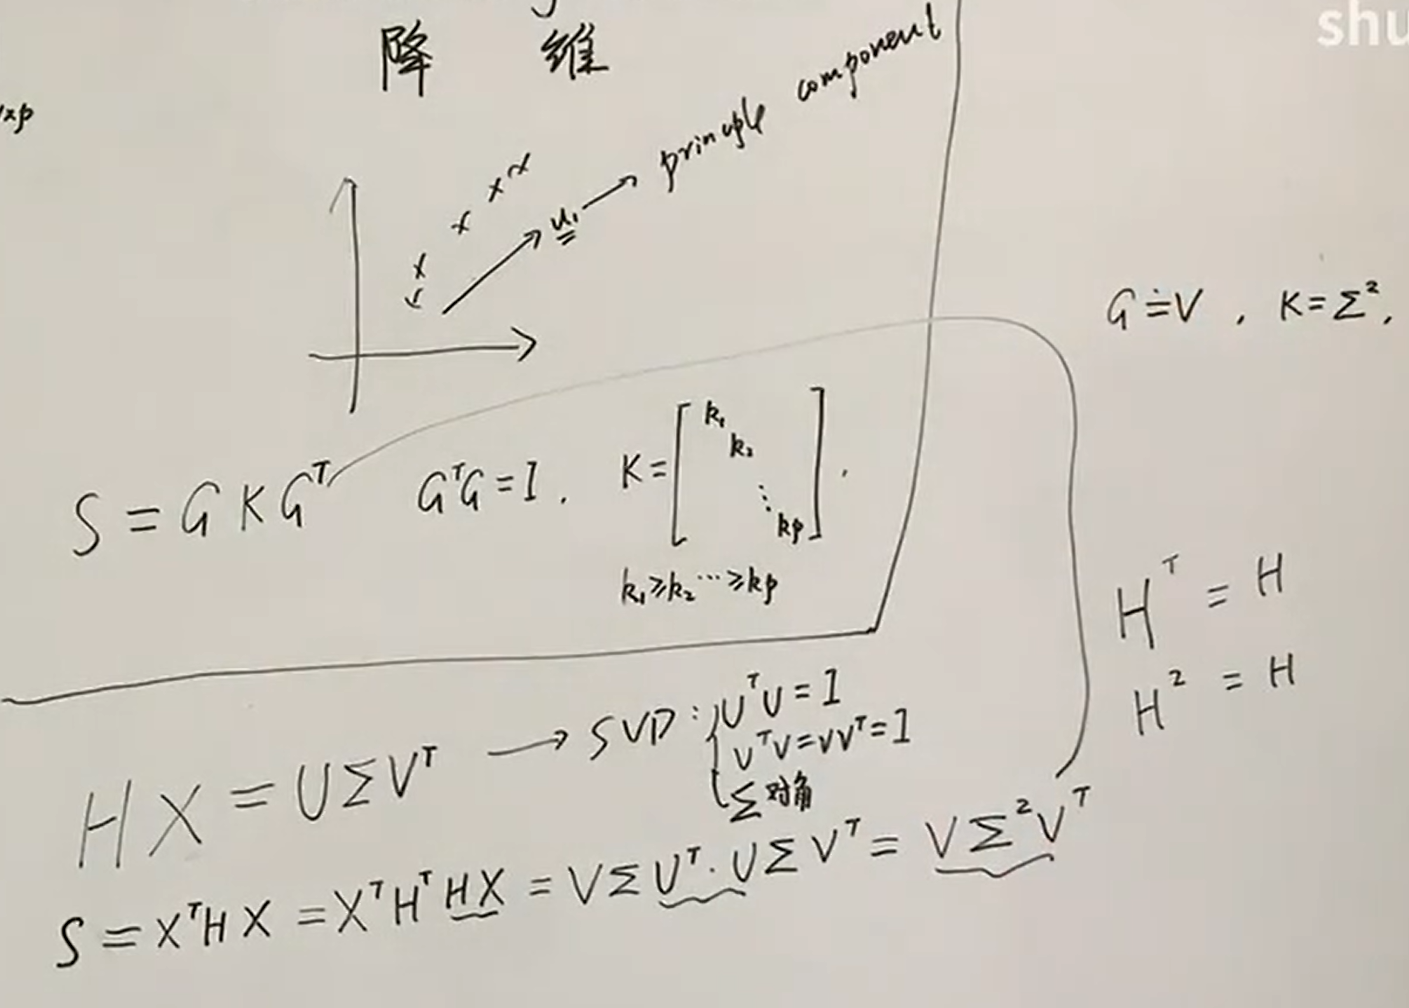 shu
降 维
xp
principle component
x x x x x
u₁
G ≐ V , K = Σ²,
S = G K Gᵀ GᵀG = I . K = [ k₁ k₂ ⋱ kp ] .
k₁ ≥ k₂ ⋯ ≥ kp
Hᵀ = H
H² = H
HX = UΣVᵀ → SVD : { UᵀU = I
VᵀV = VVᵀ = I
Σ 对角
S = XᵀHX = XᵀHᵀHX = VΣUᵀ·UΣVᵀ = VΣ²Vᵀ